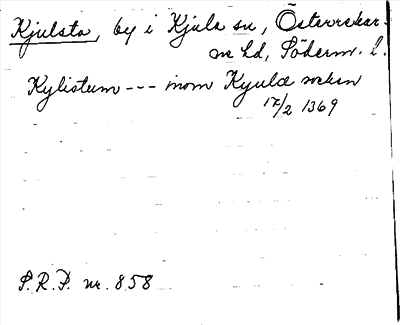 Kjulsta, by i Kjula sn, Österrekar-
ne hd, Söderm. l.
Kylistum --- inom Kyulæ socken
17/2 1369
S.R.P. nr. 858